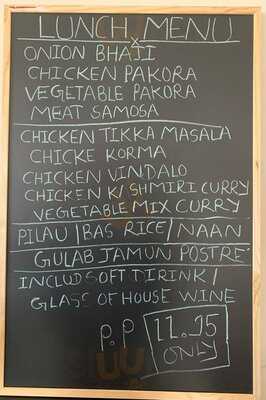 LUNCH MENU
ONION BHAJI
CHICKEN PAKORA
VEGETABLE PAKORA
MEAT SAMOSA
CHICKEN TIKKA MASALA
CHICKE KORMA
CHICKEN VINDALO
CHICKEN K/SHMIRI CURRY
VEGETABLE MIX CURRY
PILAU | BAS RICE | NAAN
GULAB JAMUN POSTRE
INCLUD SOFT DIRINK /
GLASS OF HOUSE WINE
P.P 11.95
ONLY